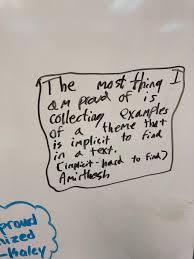 The most thing I
am proud of is
collecting examples
of a theme that
is implicit to find
in a text.
(implicit-hard to find)
Amirthesh
proud
nized
-Haley